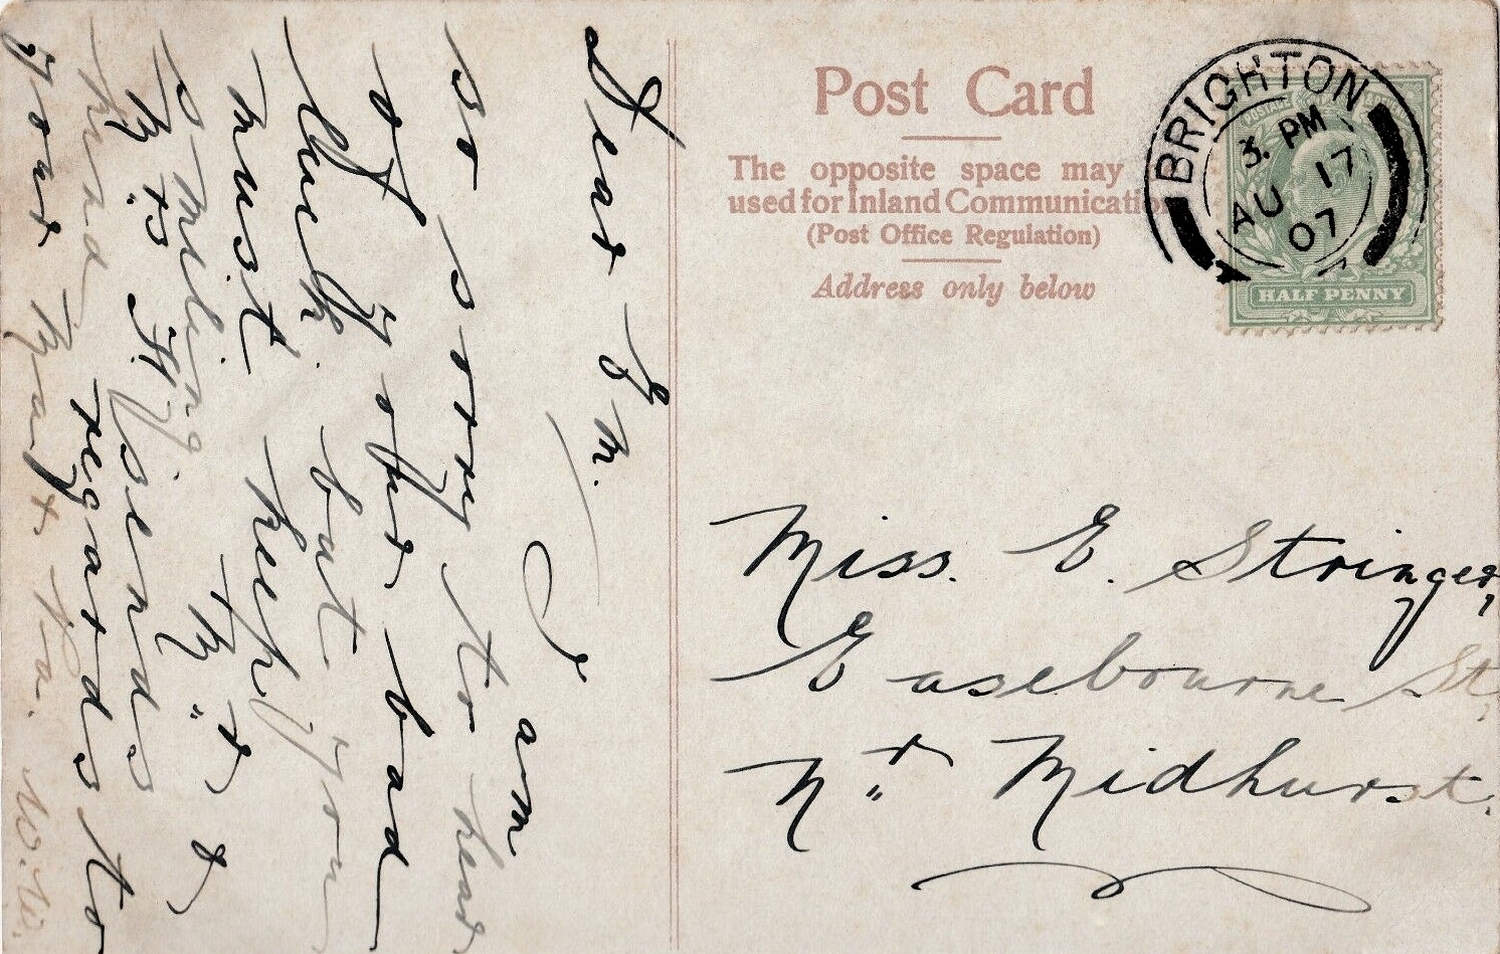 Dear Em.
I am
so sorry to hear
of your bad
luck. but you
must keep
smiling
Mrs H sends
kind regards to
your
W.W.
Post Card
The opposite space may
used for Inland Communication
(Post Office Regulation)
Address only below
BRIGHTON
3. PM
AU 17
07
HALF PENNY
Miss. E. Stringer,
Easebourne St,
Nr. Midhurst.